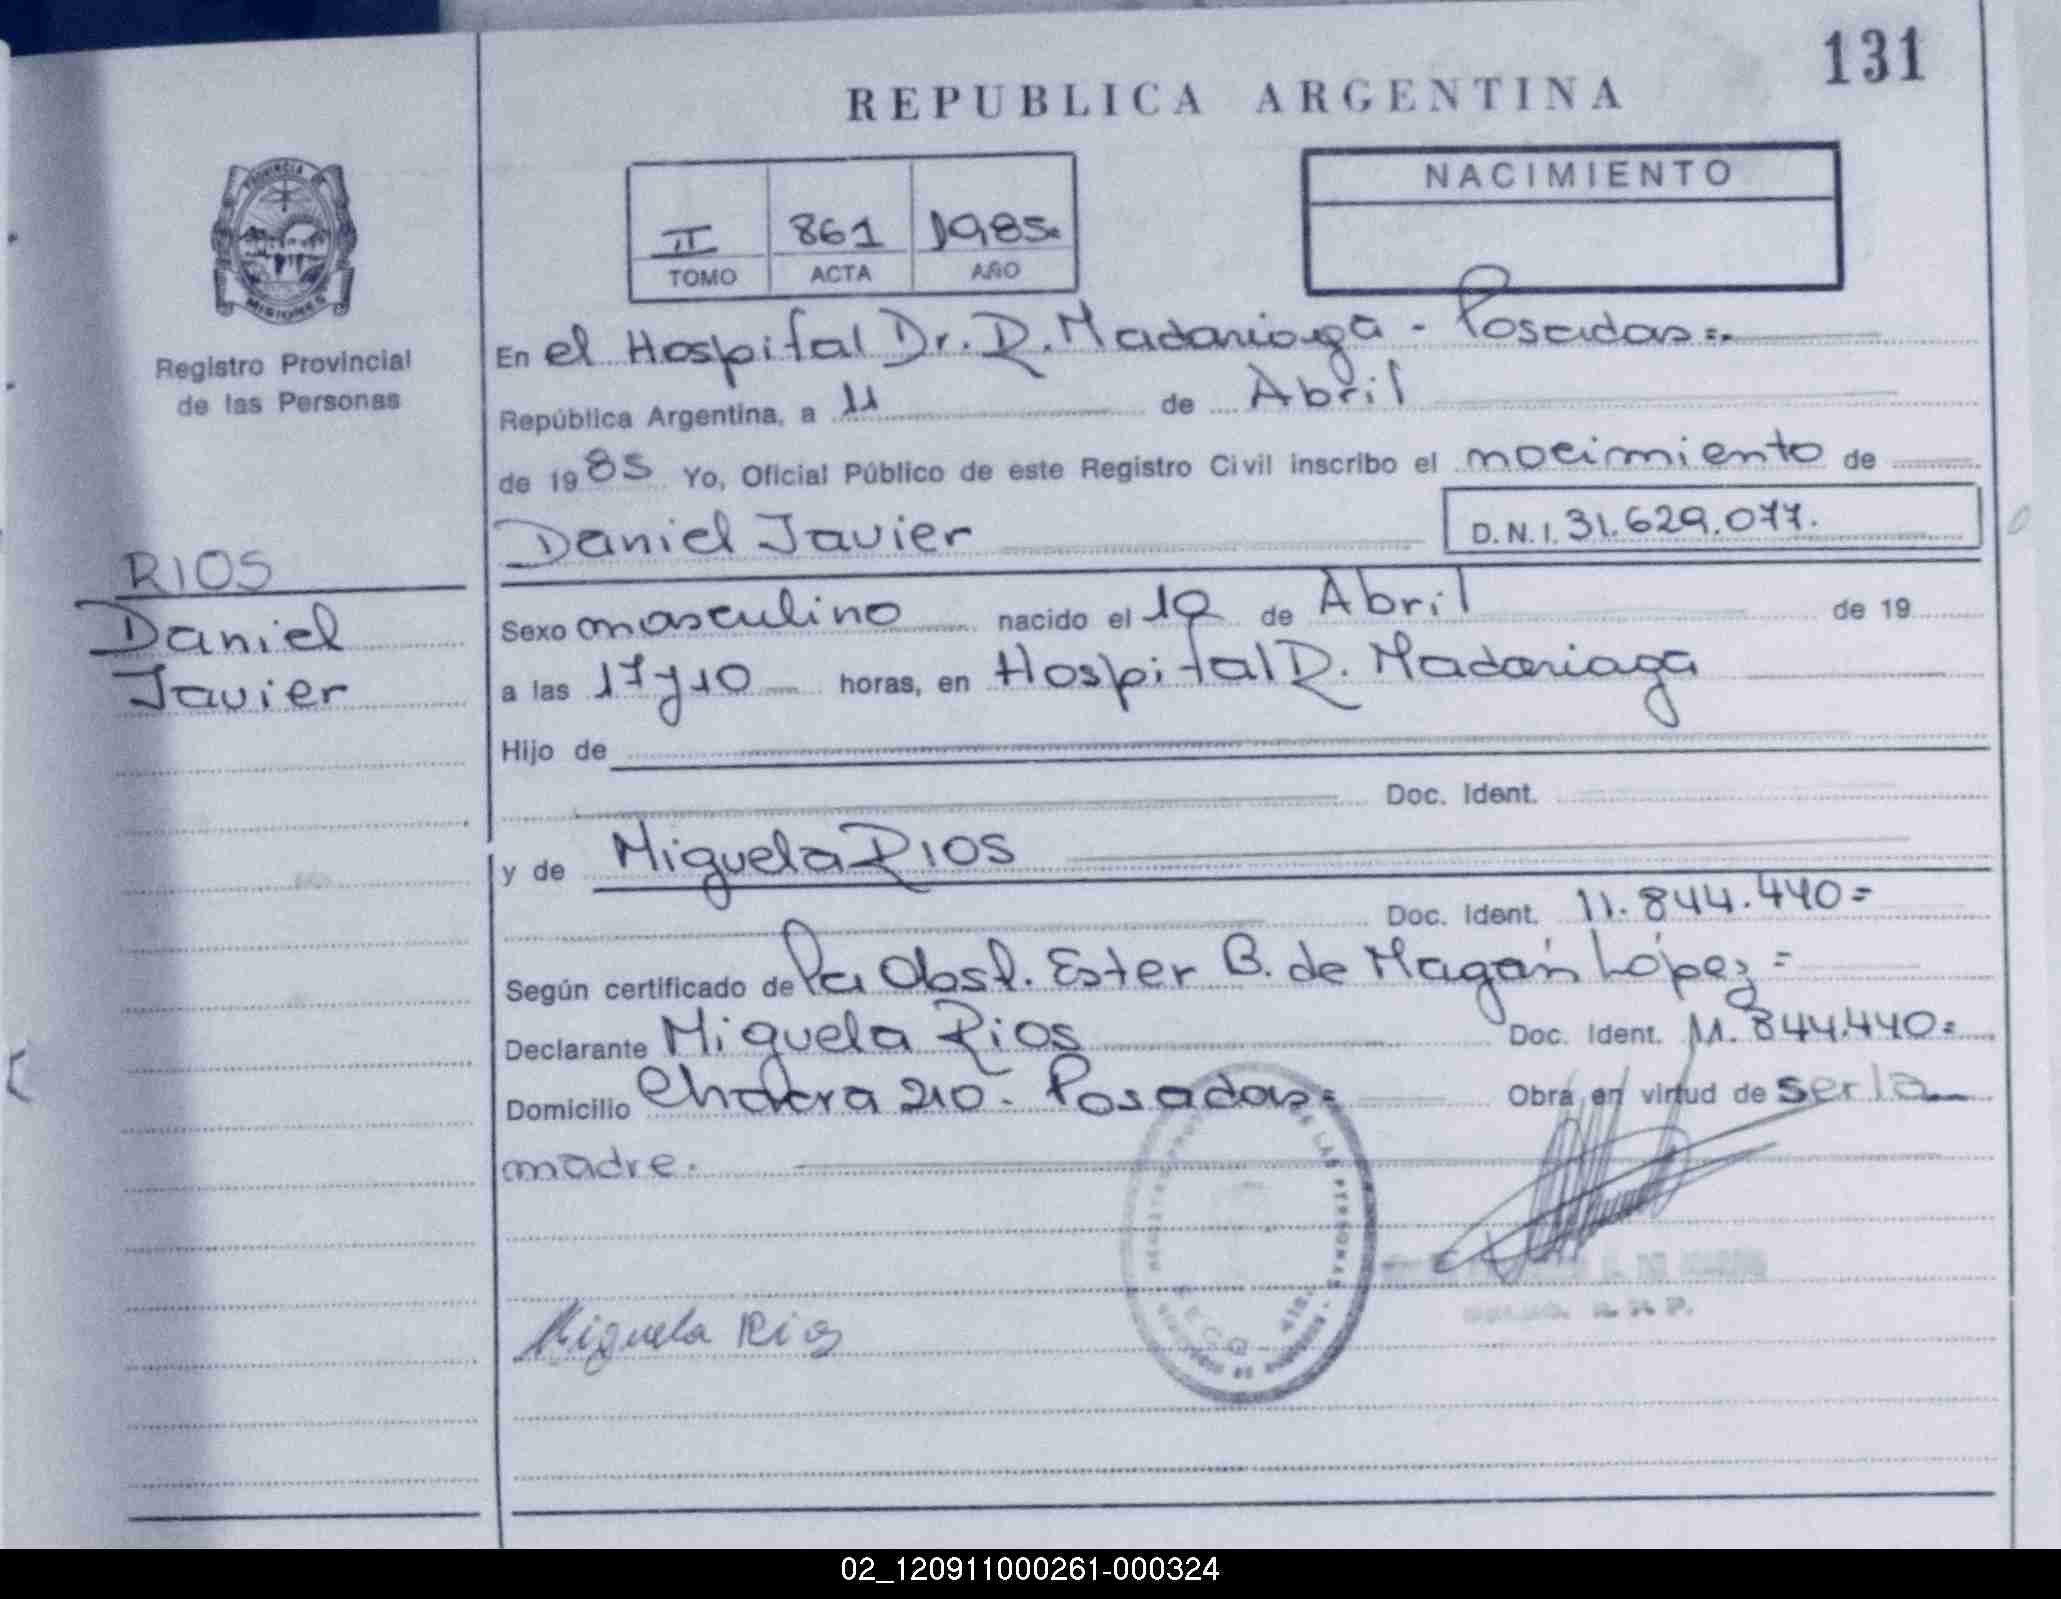 131
REPUBLICA ARGENTINA
PROVINCIA DE
MISIONES
Registro Provincial
de las Personas
II 861 1985
TOMO ACTA AÑO
NACIMIENTO
En el Hospital Dr. R. Madariaga - Posadas =.
República Argentina, a 11 de Abril
de 1985 Yo, Oficial Público de este Registro Civil inscribo el nacimiento de
Daniel Javier D.N.I. 31.629.077.
RIOS
Daniel
Javier
Sexo masculino nacido el 10 de Abril de 19
a las 17 y 10 horas, en Hospital R. Madariaga
Hijo de
Doc. Ident.
y de Miguela RIOS
Doc. Ident. 11.844.440=
Según certificado de la Obst. Ester B. de Magán López =
Declarante Miguela Rios Doc. Ident. 11.844.440=
Domicilio Chacra 210 - Posadas = Obra en virtud de ser la
madre.
DE LAS PERSONAS
Miguela Rios
02_120911000261-000324